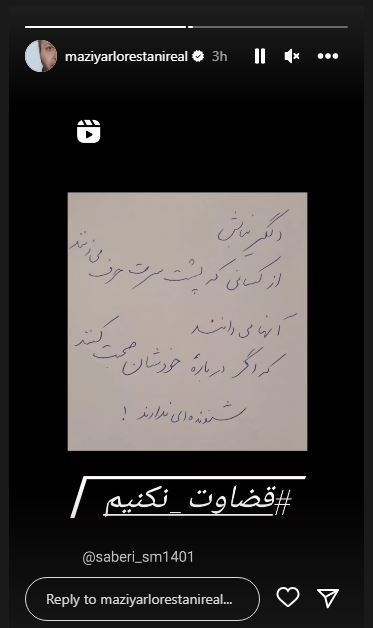 maziyarlorestanireal 3h
دلگیر نباش
از کسانی که پشت سرت حرف می‌زنند
آنها می دانند
که اگر دربارهٔ خودشان صحبت کنند
شنونده‌ای ندارند !
#قضاوت_نکنیم
@saberi_sm1401
Reply to maziyarlorestanireal...